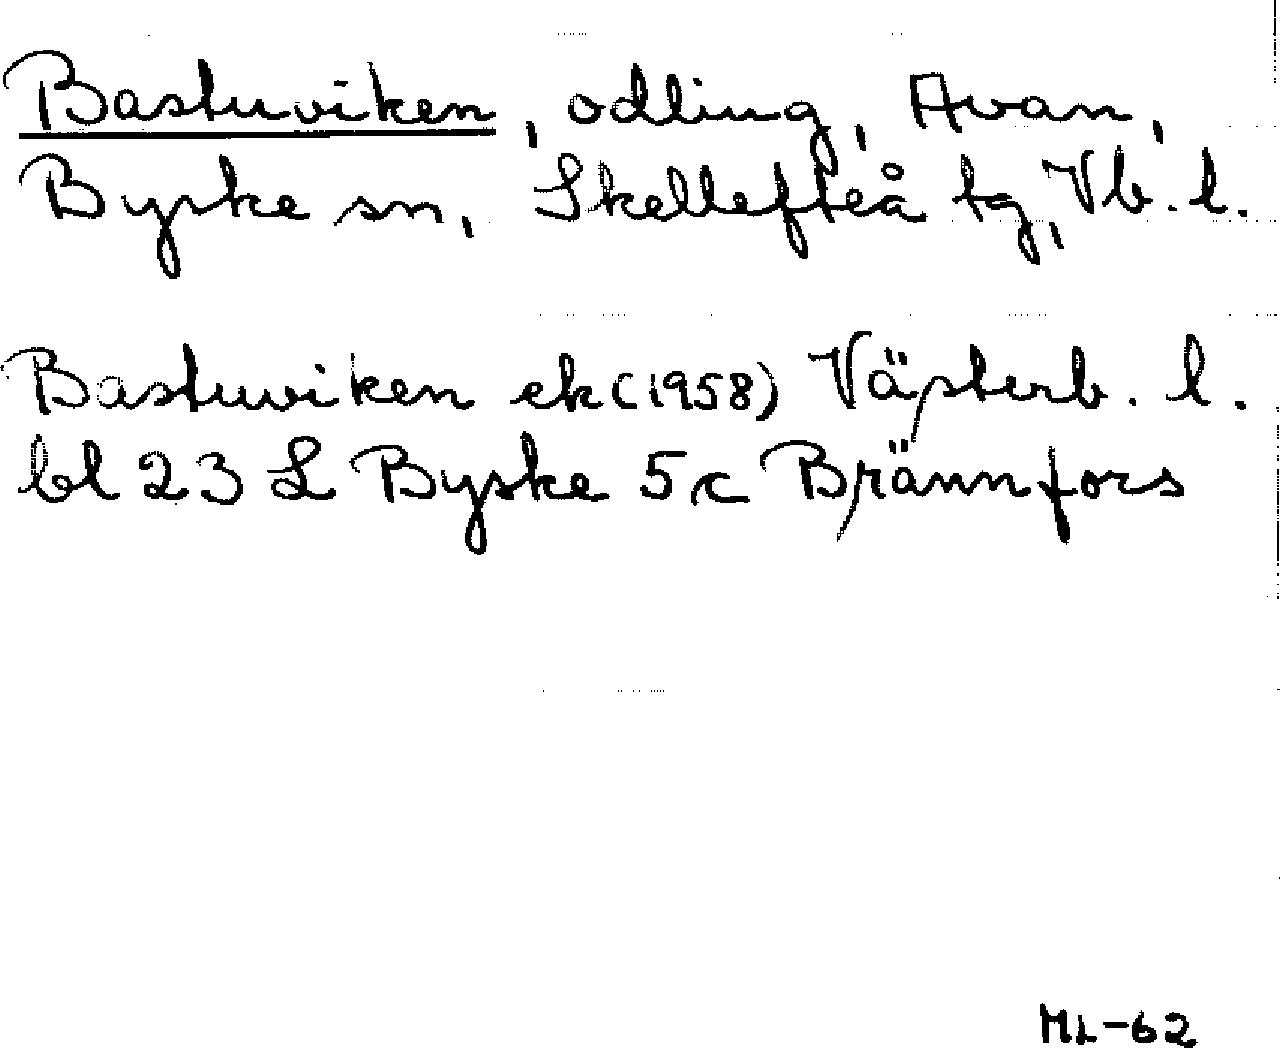 Bastuviken, odling, Avan,
Byske sn, Skellefteå tg, Vb. l.
Bastuviken ek (1958) Västerb. l.
bl 23 L Byske 5c Brännfors
ML-62